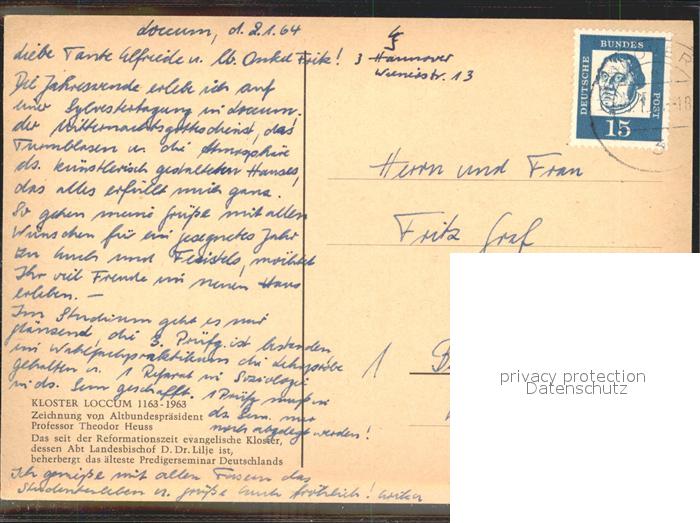 Loccum, d. 2.1.64
Liebe Tante Elfriede u. lb. Onkel Fritz!
Die Jahreswende erlebe ich auf
einer Sylvestertagung in Loccum.
der Mitternachtsgottesdienst, das
Turmblasen u. die Atmosphäre
ds. künstlerisch gestalteten Hauses,
das alles erfüllt mich ganz.
So gehen meine Grüße mit allen
Wünschen für ein gesegnetes Jahr
zu Euch und möchtet
Ihr viel Freude im neuen Haus
erleben. –
Im Studium geht es mir
glänzend, die 3. Prüfg. ist bestanden
im Wahlfachpraktikum die Lehrprobe
gehalten u. 1 Referat in Soziologie
in ds. Sem. geschafft. 1 Prüfg muß in
ds. Sem. nur
noch abgelegt werden!
KLOSTER LOCCUM 1163-1963
Zeichnung von Altbundespräsident
Professor Theodor Heuss
Das seit der Reformationszeit evangelische Kloster,
dessen Abt Landesbischof D. Dr. Lilje ist,
beherbergt das älteste Predigerseminar Deutschlands
Ich genieße mit allen Fasern das
Studentenleben u. grüße Euch fröhlich!
3 Hannover
13
DEUTSCHE BUNDES POST
15
Herrn und Frau
Fritz Graf
1
privacy protection
Datenschutz